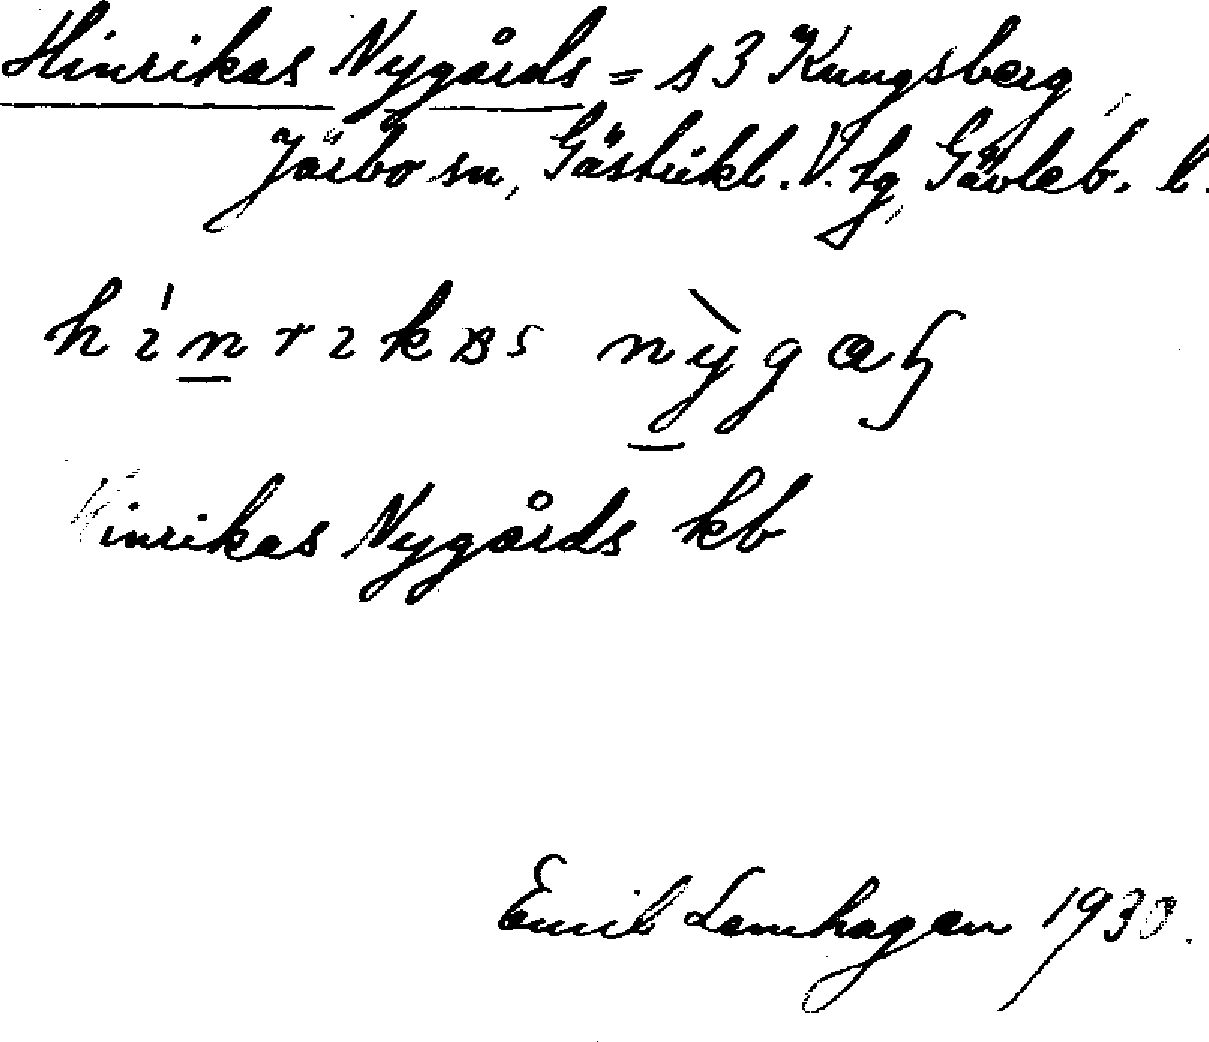 Hinrikas Nygårds = s 3 Kungsberg,
Järbo sn, Gästrikl. V. tg, Gävleb. l.
Hinrikas Nygårds kb
Emil Lamhagen 1930.